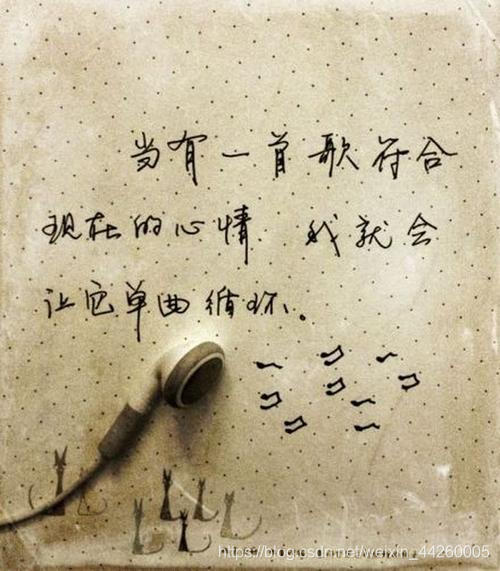 当有一首歌符合
现在的心情 我就会
让它单曲循环。
https://blog.csdn.net/weixin_44260005